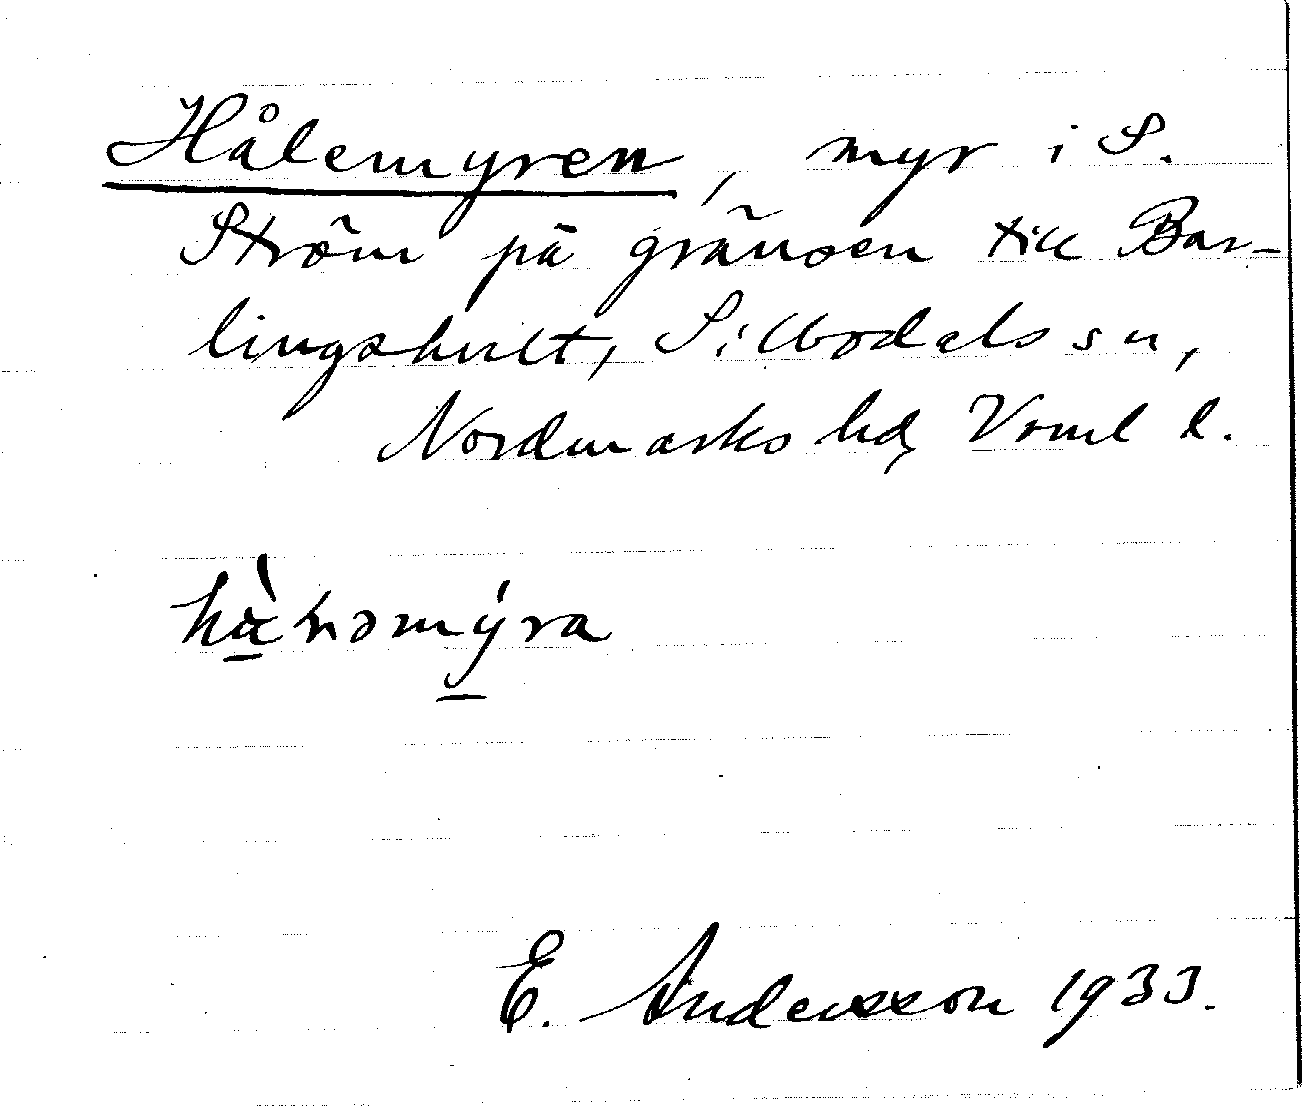 Hålemyren, myr i S.
Ström på gränsen till Bar-
lingshult, Sillbodals sn,
Nordmarks hd, Vrml l.
E. Andersson 1933.